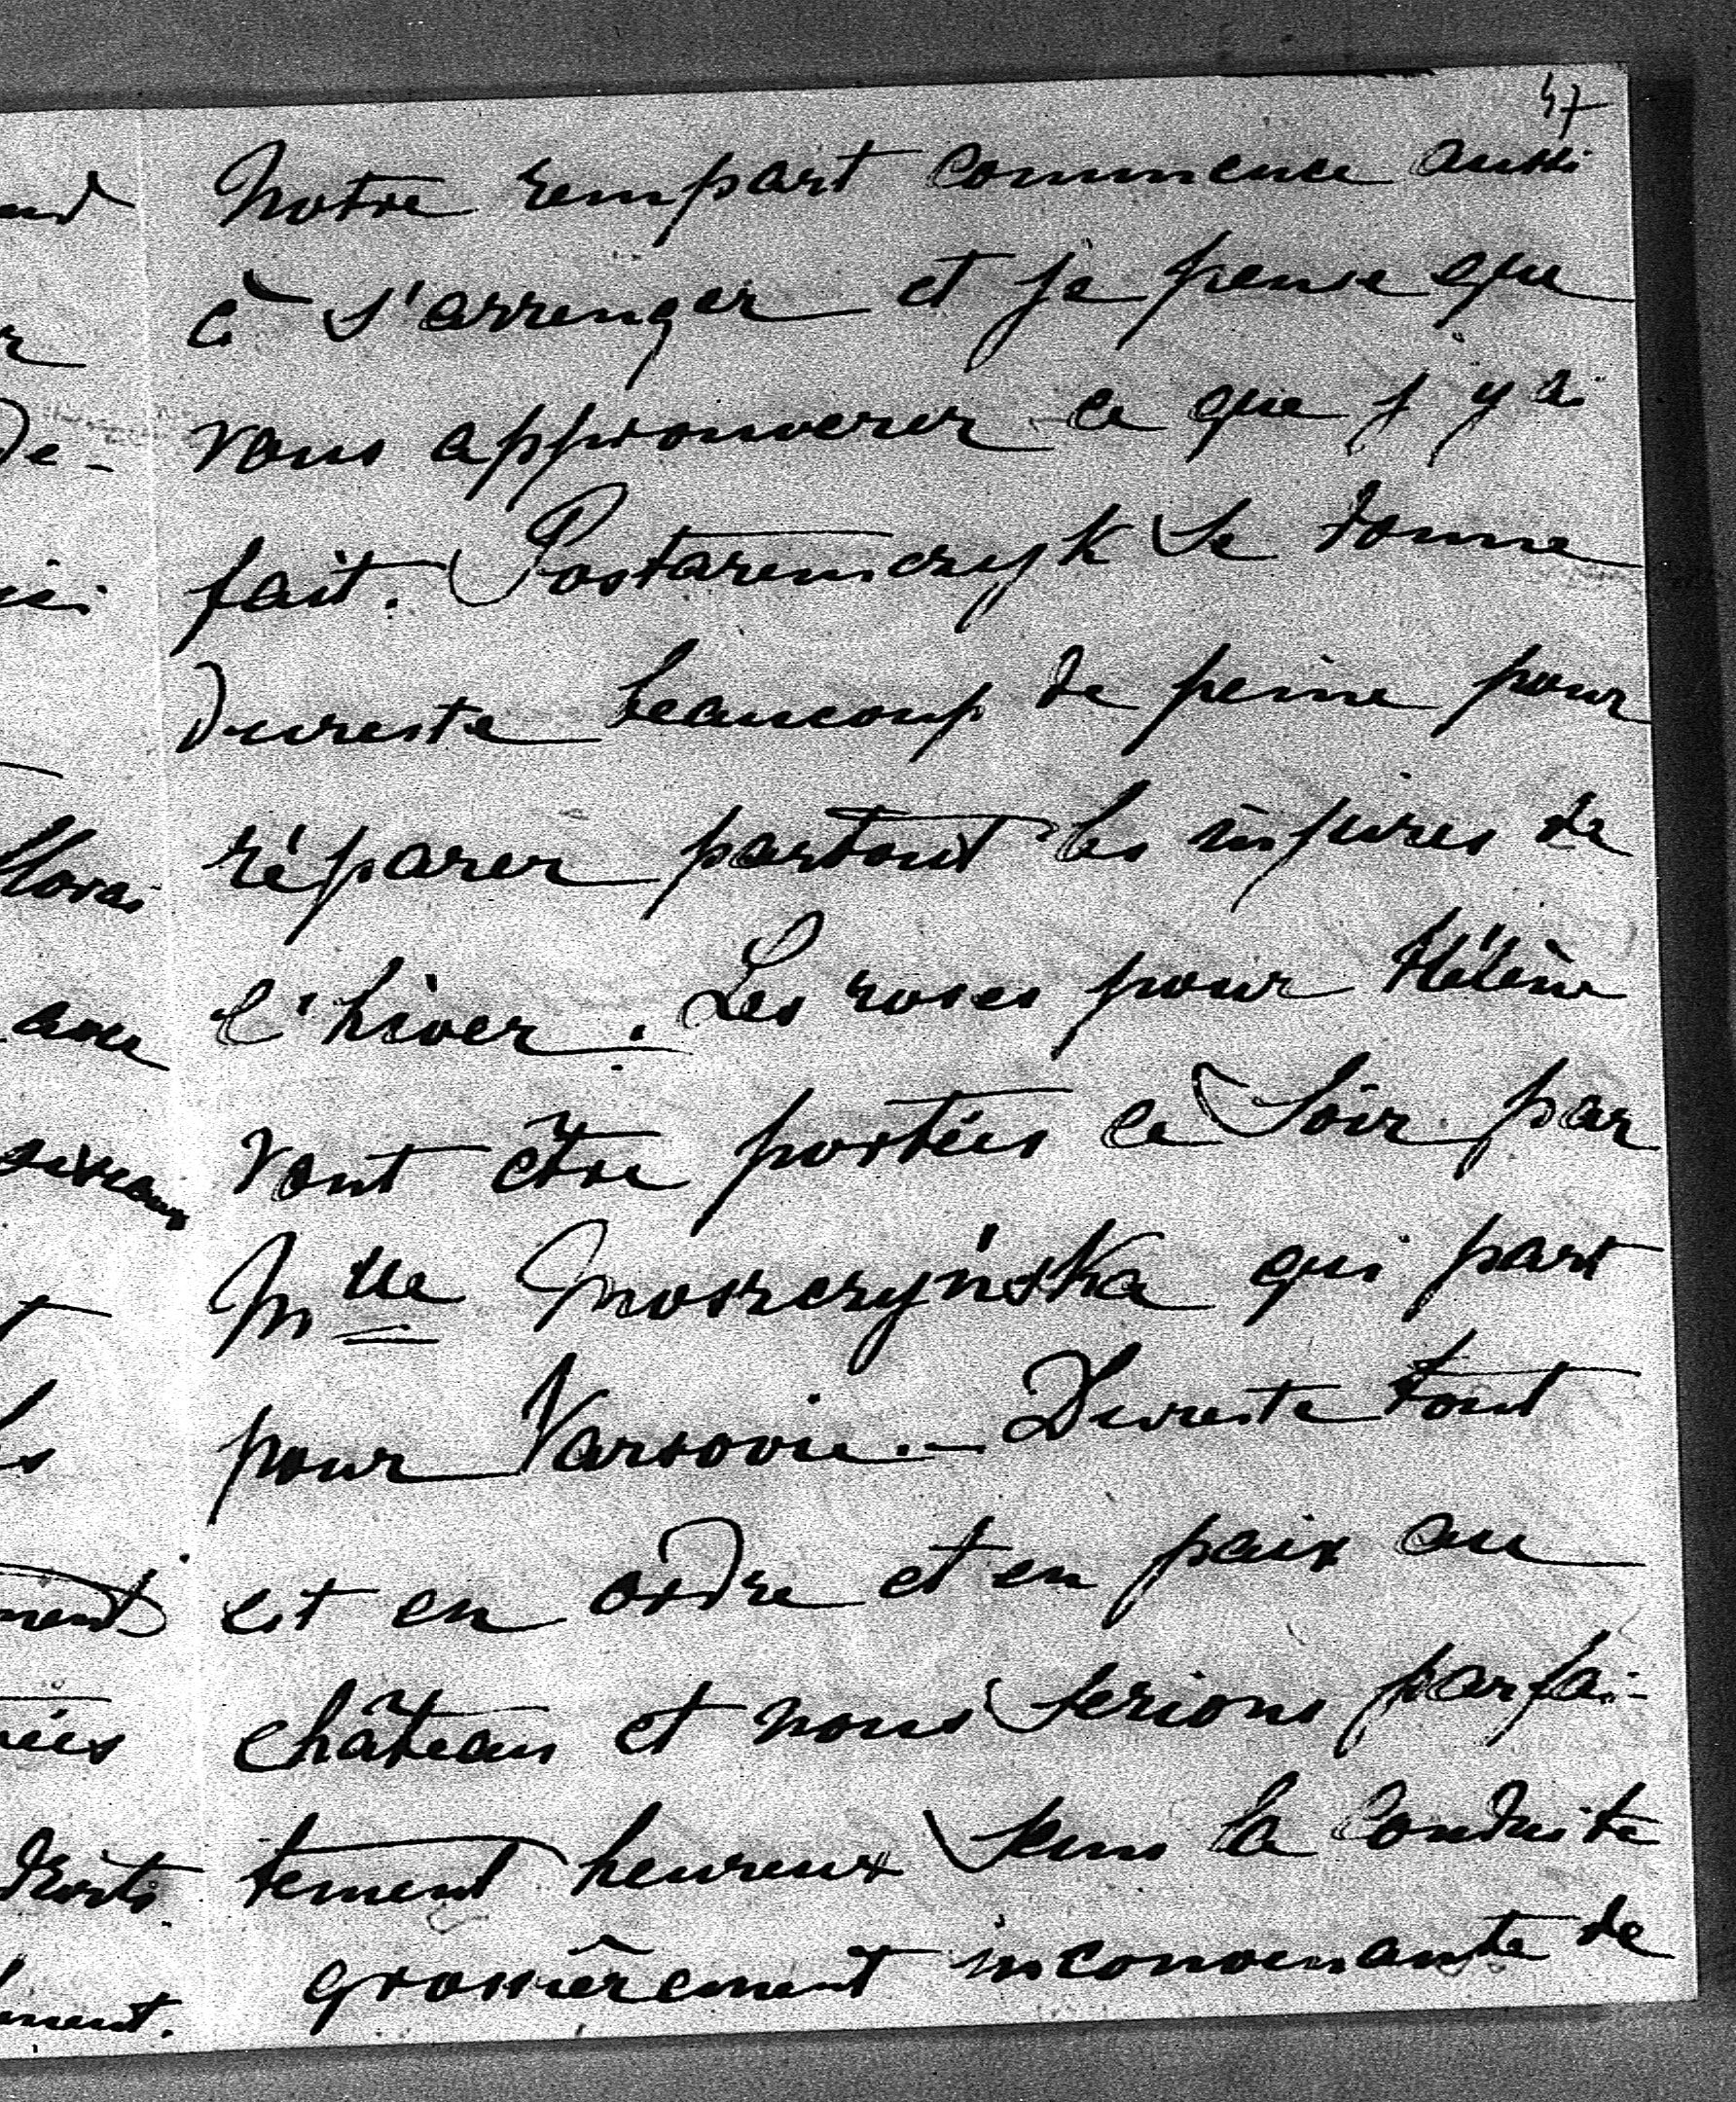 47
Notre rempart commence aussi
à s'arrenger et je pense que
vous approuverer ce que j'y ai
fait. Postaremczyk se donne
Dureste beaucoup de peine pour
réparer partout les injures de
l'hiver. Les roses pour Hélène
vont être portées ce soir par
Mlle Moszczyńska qui part
pour Varsovie. — Dureste tout
est en ordre et en paix au
château et nous serions parfai-
tement heureux sans la conduite
grossièrement inconvenante de